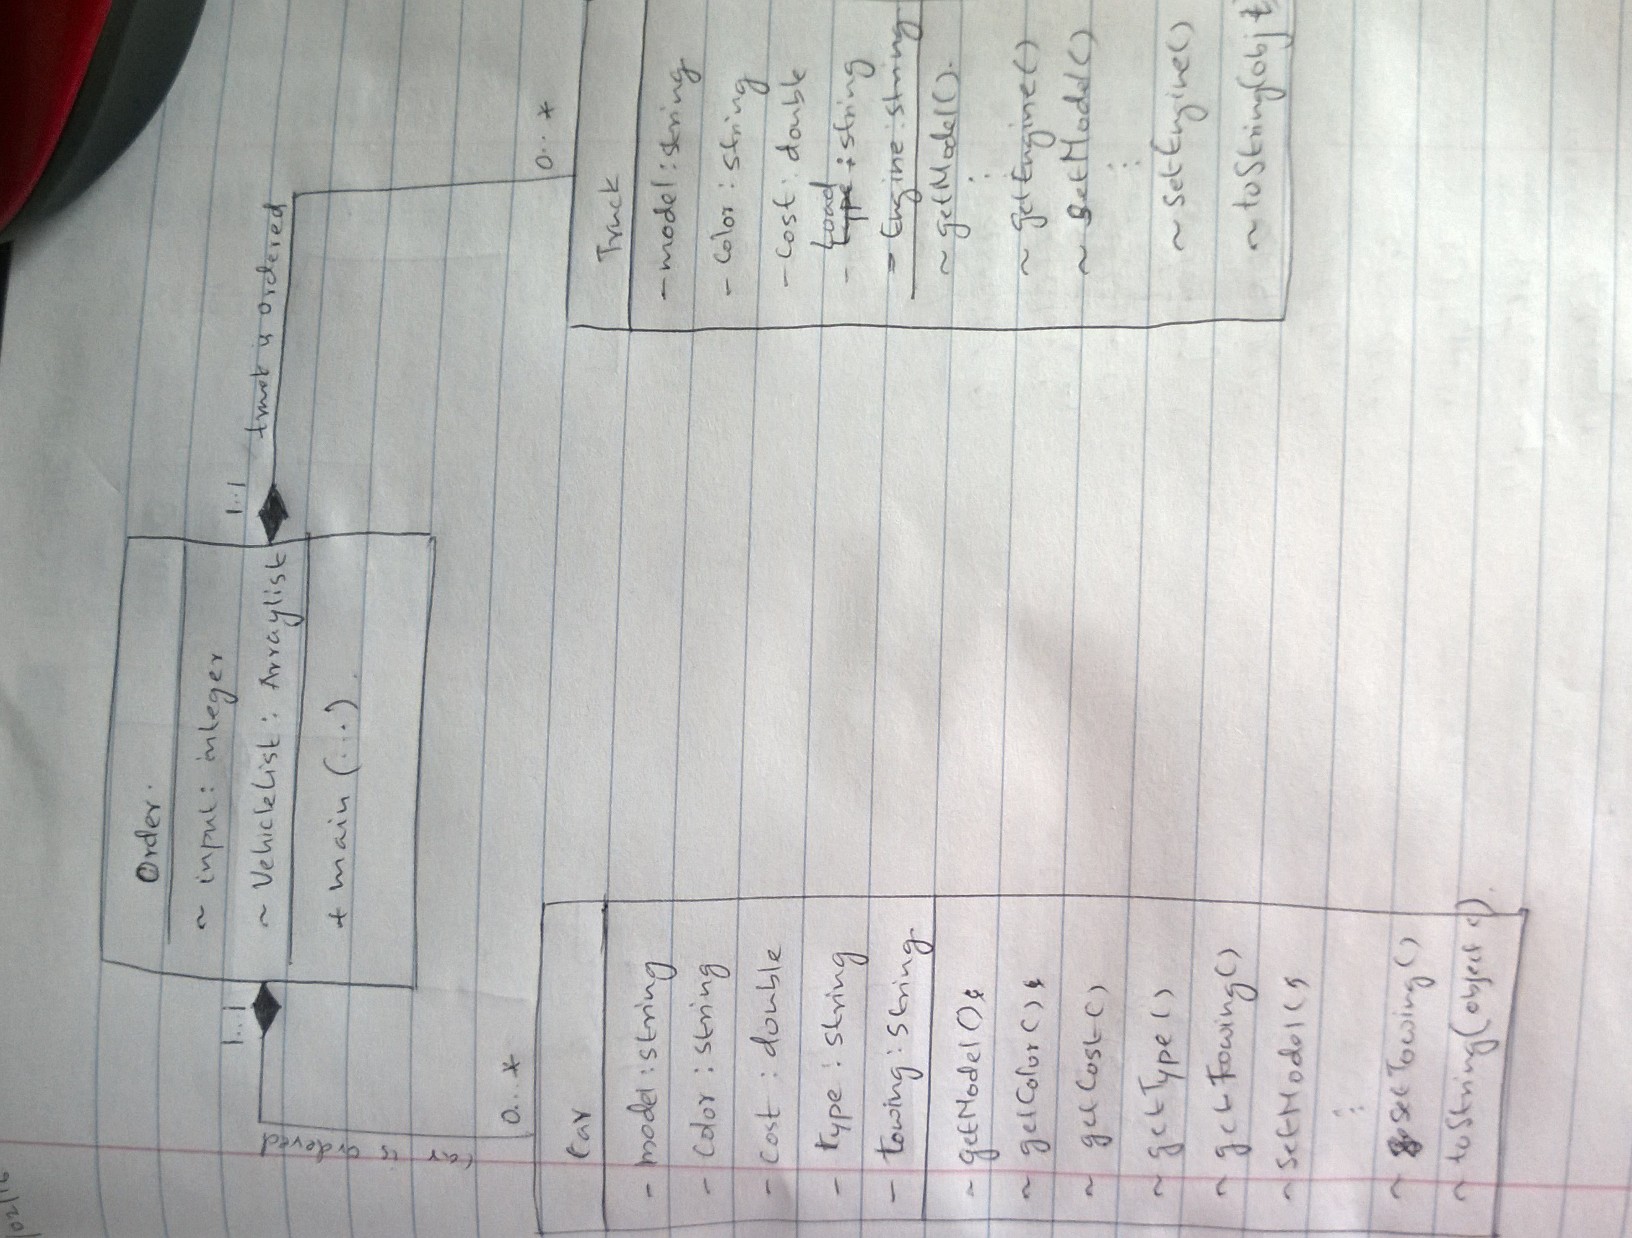 /02/16
Order.
~ input: integer
1..1
1..1
~ VehicleList: Arraylist
truck is ordered
+ main (...).
Car is ordered
0...*
0..*
Car
- model: string
- Color: string
- Cost: double
- type: string
- towing: string
~ getModel()
~ getColor()
~ getCost()
~ getType()
~ getTowing()
~ setModel()
⋮
~ setTowing()
~ toString(object c).
Truck
- model: string
- Color: string
- Cost: double
Load
- type: string
- Engine: string
~ getModel().
⋮
~ getEngine()
~ setModel()
⋮
~ setEngine()
~ toString(obj t)